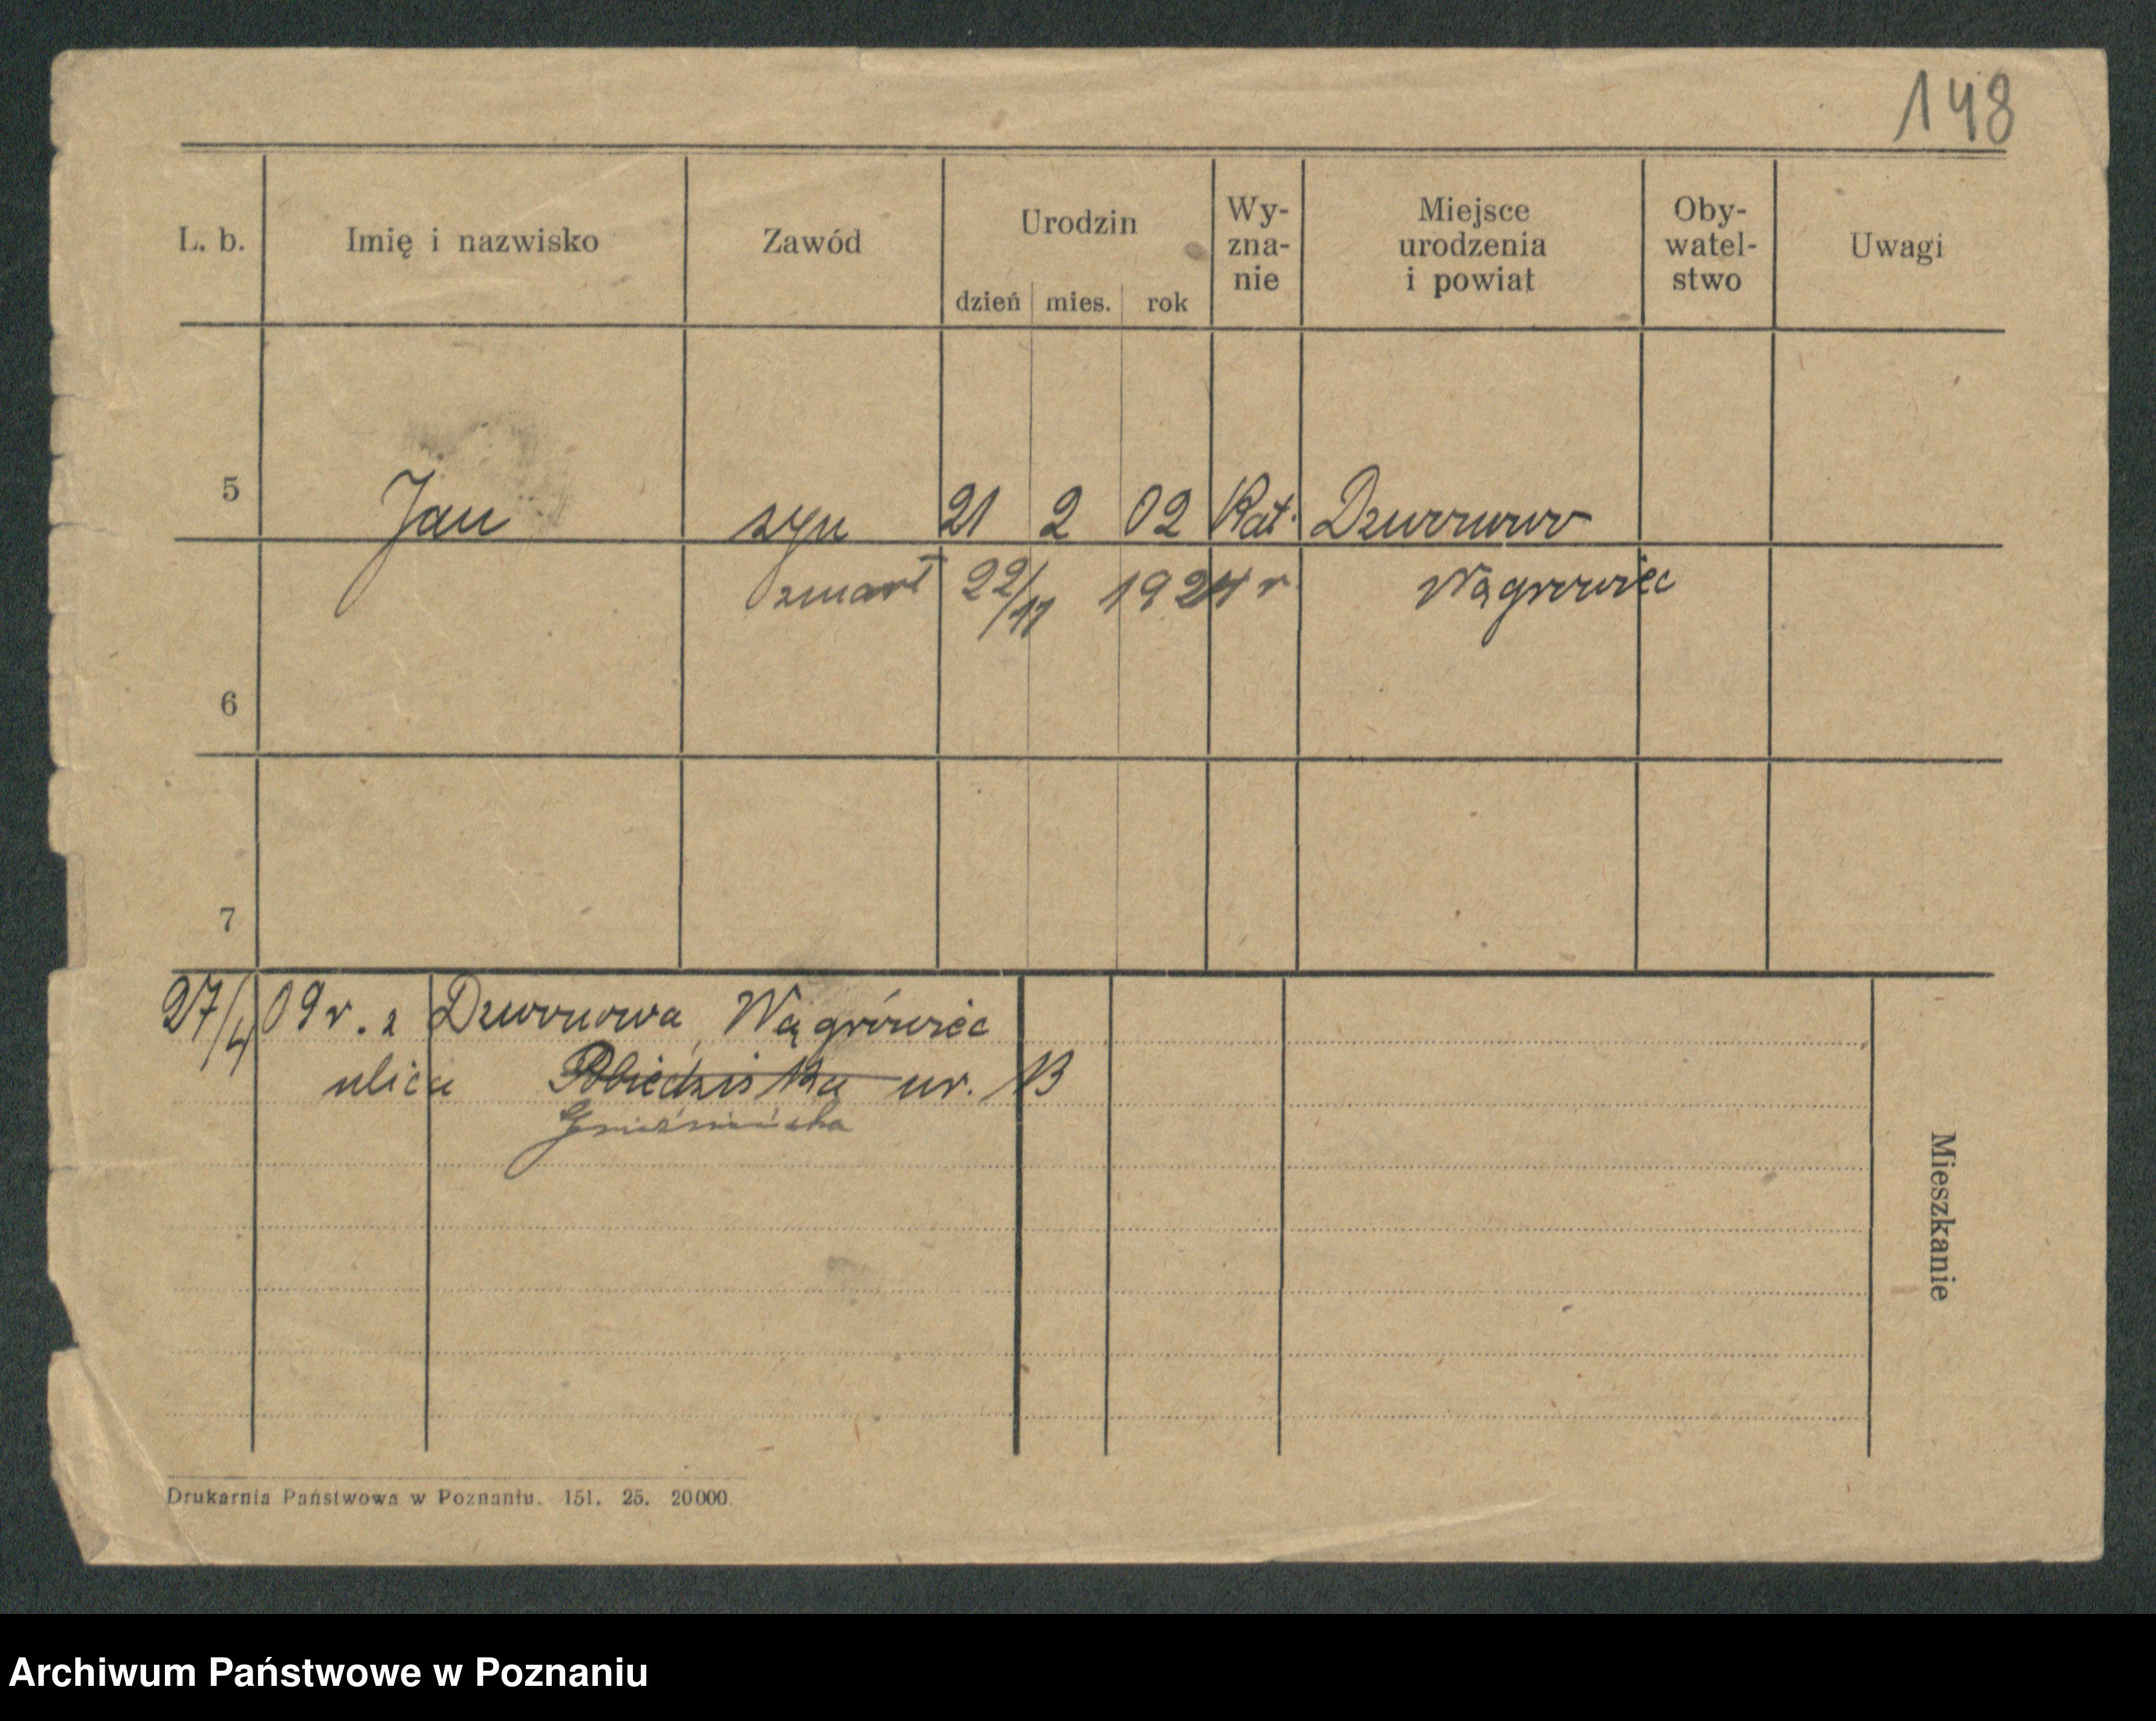 148
L. b.
Imię i nazwisko
Zawód
Urodzin
dzień mies. rok
Wy-
zna-
nie
Miejsce
urodzenia
i powiat
Oby-
watel-
stwo
Uwagi
5 Jan syn 21 2 02 Kat. Dzwonowo
zmarł 22/11 1924 r Wągrowiec
6
7
27/4 09 r. z Dzwonowa, Wągrówiec
ulica Pobiedziska nr. 13
Gnieźnieńska
Mieszkanie
Drukarnia Państwowa w Poznaniu. 151. 25. 20000.
Archiwum Państwowe w Poznaniu